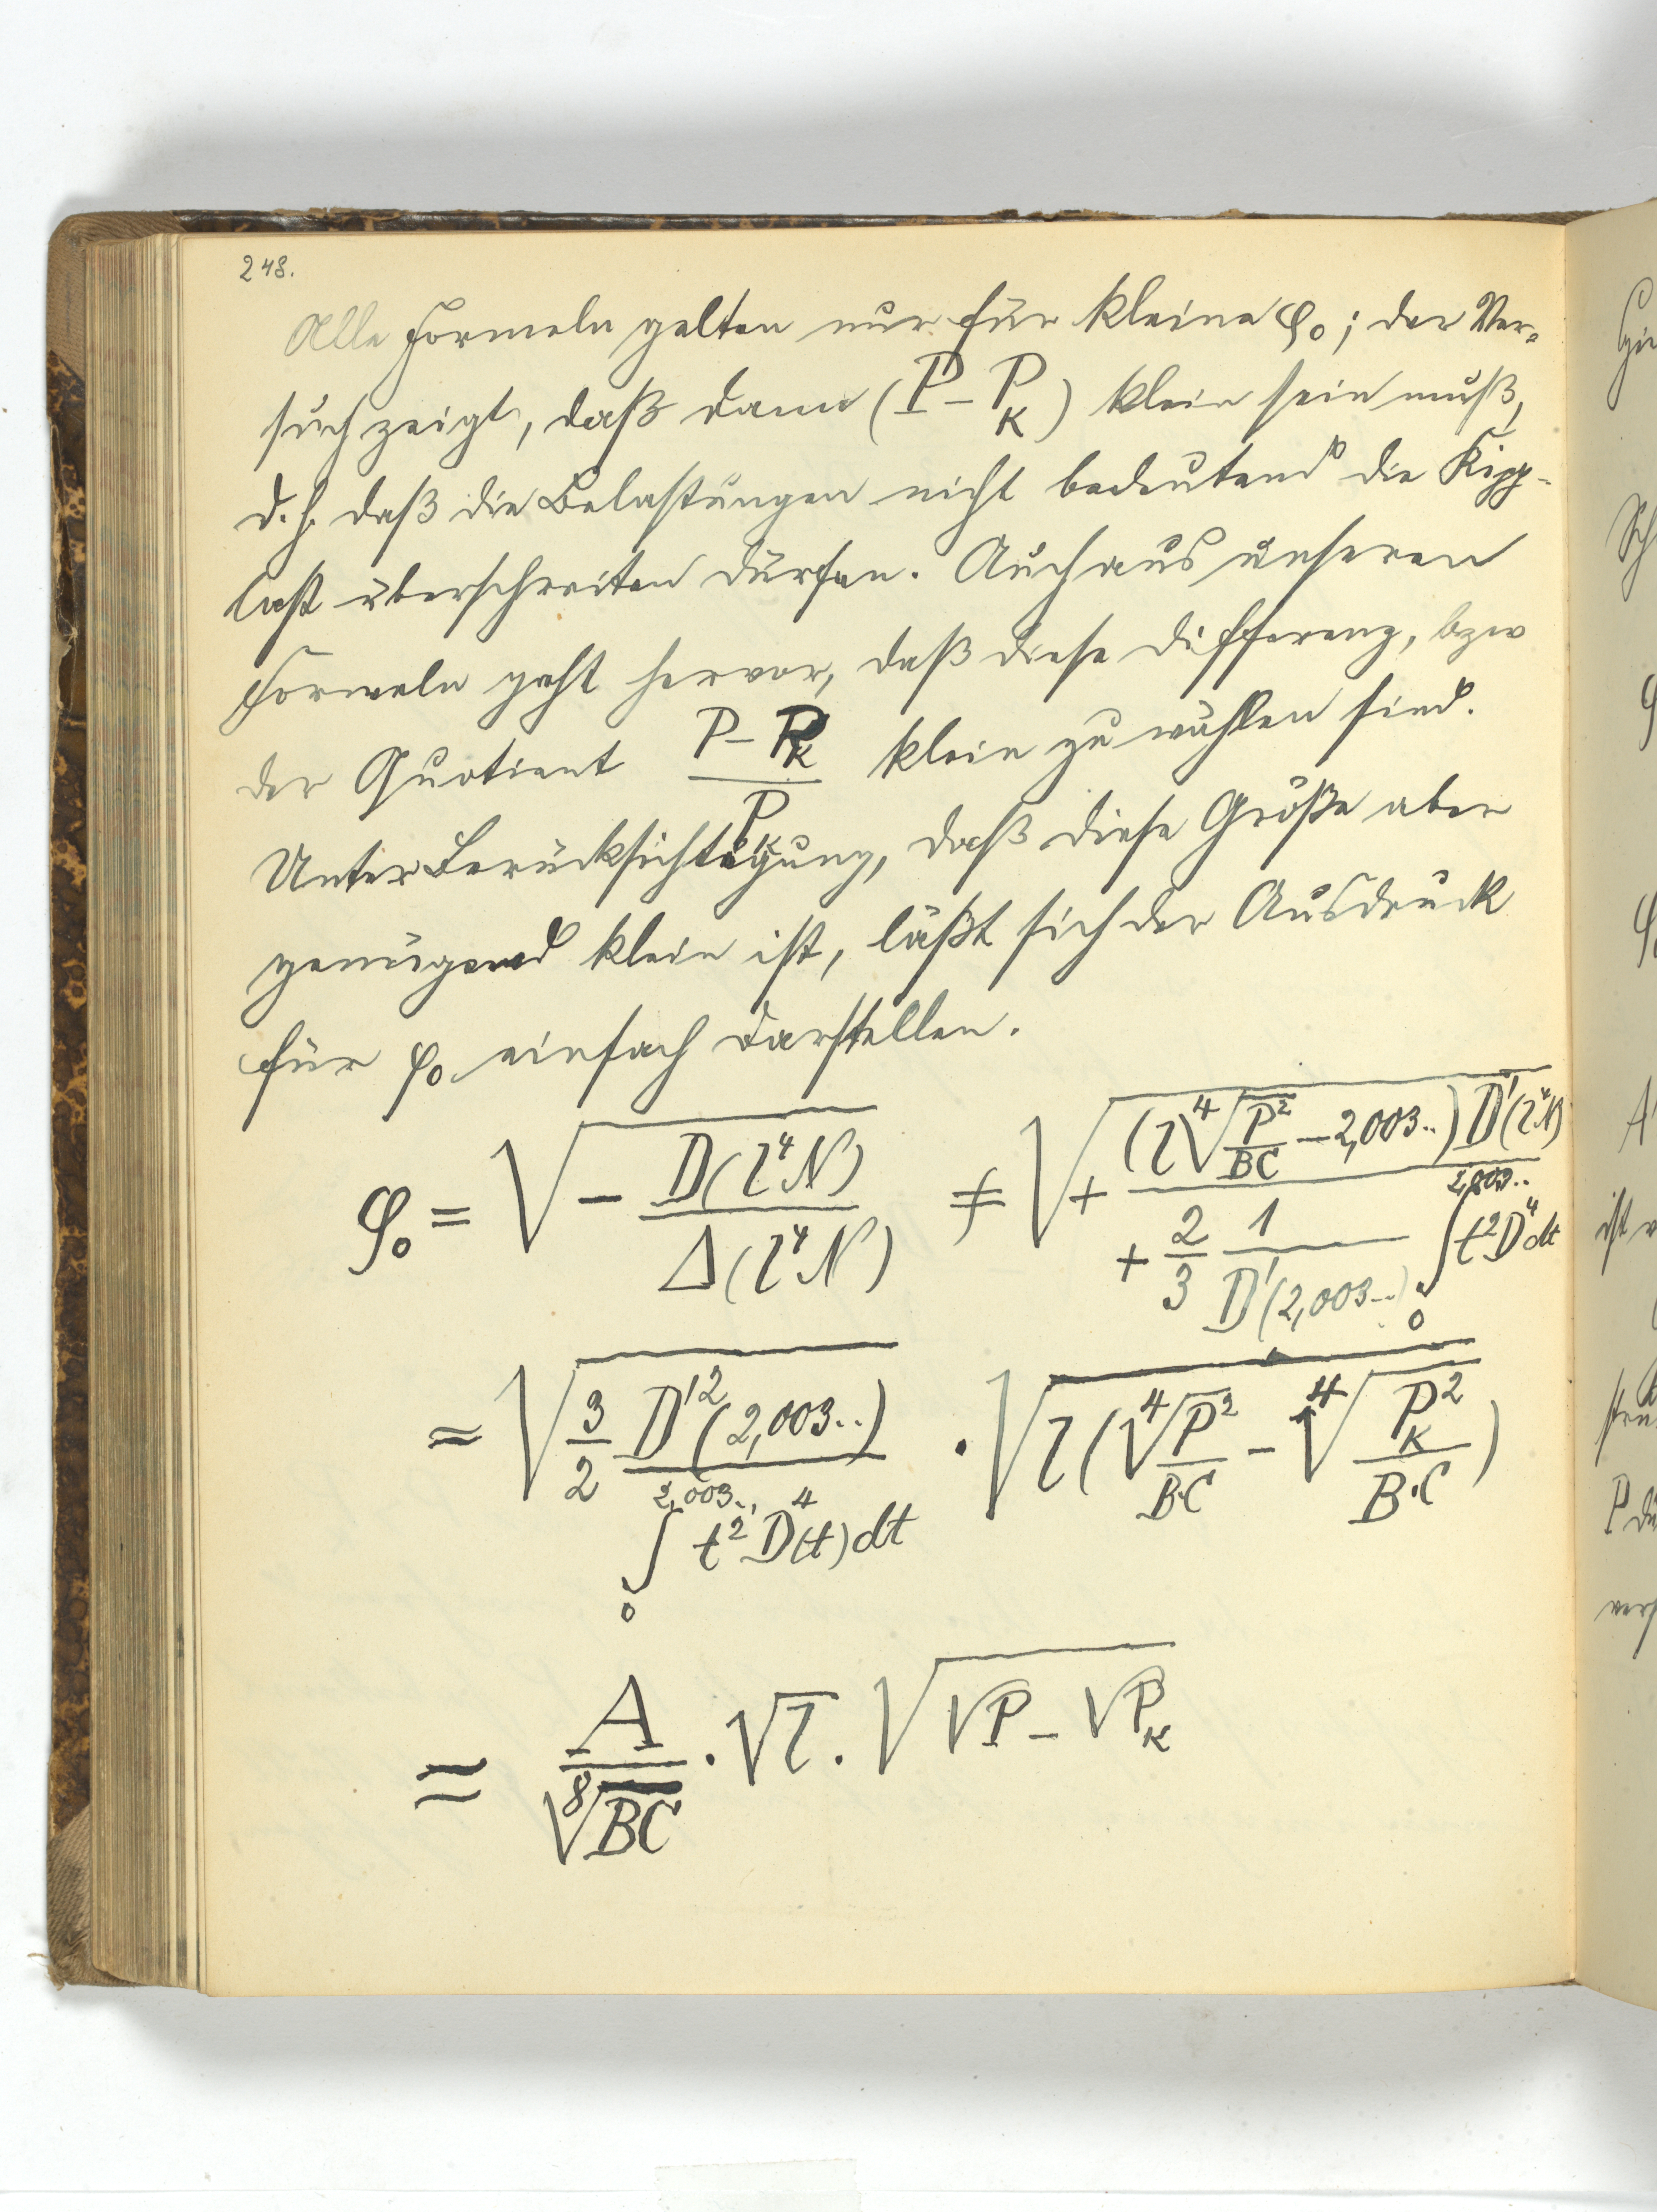 248.
Alle Formeln gelten nur für kleine φ₀; der Ver-
such zeigt, daß dann (P - P_K) klein sein muß,
d. h. daß die Belastungen nicht bedeutend die Kipp-
last überschreiten dürfen. Auch aus unseren
Formeln geht hervor, daß diese Differenz, bzw
der Quotient (P - P_K)/P_K klein zu wählen sind.
Unter Berücksichtigung, daß diese Größe aber
genügend klein ist, läßt sich der Ausdruck
für φ₀ einfach darstellen.
φ₀ = √(- D(l⁴N) / Δ(l⁴N)) ≠ √(+ (l ⁴√(P²/BC) - 2,003..) D'(l⁴N) / (+ 2/3 1/D'(2,003..) ∫₀^2,003.. t² D⁴ dt))
= √(3/2 D'²(2,003..) / ∫₀^2,003.. t² D⁴(t) dt) · √(l (⁴√(P²/B·C) - ⁴√(P_K²/B·C)))
≈ A/⁸√BC · √l · √(√P - √P_K)